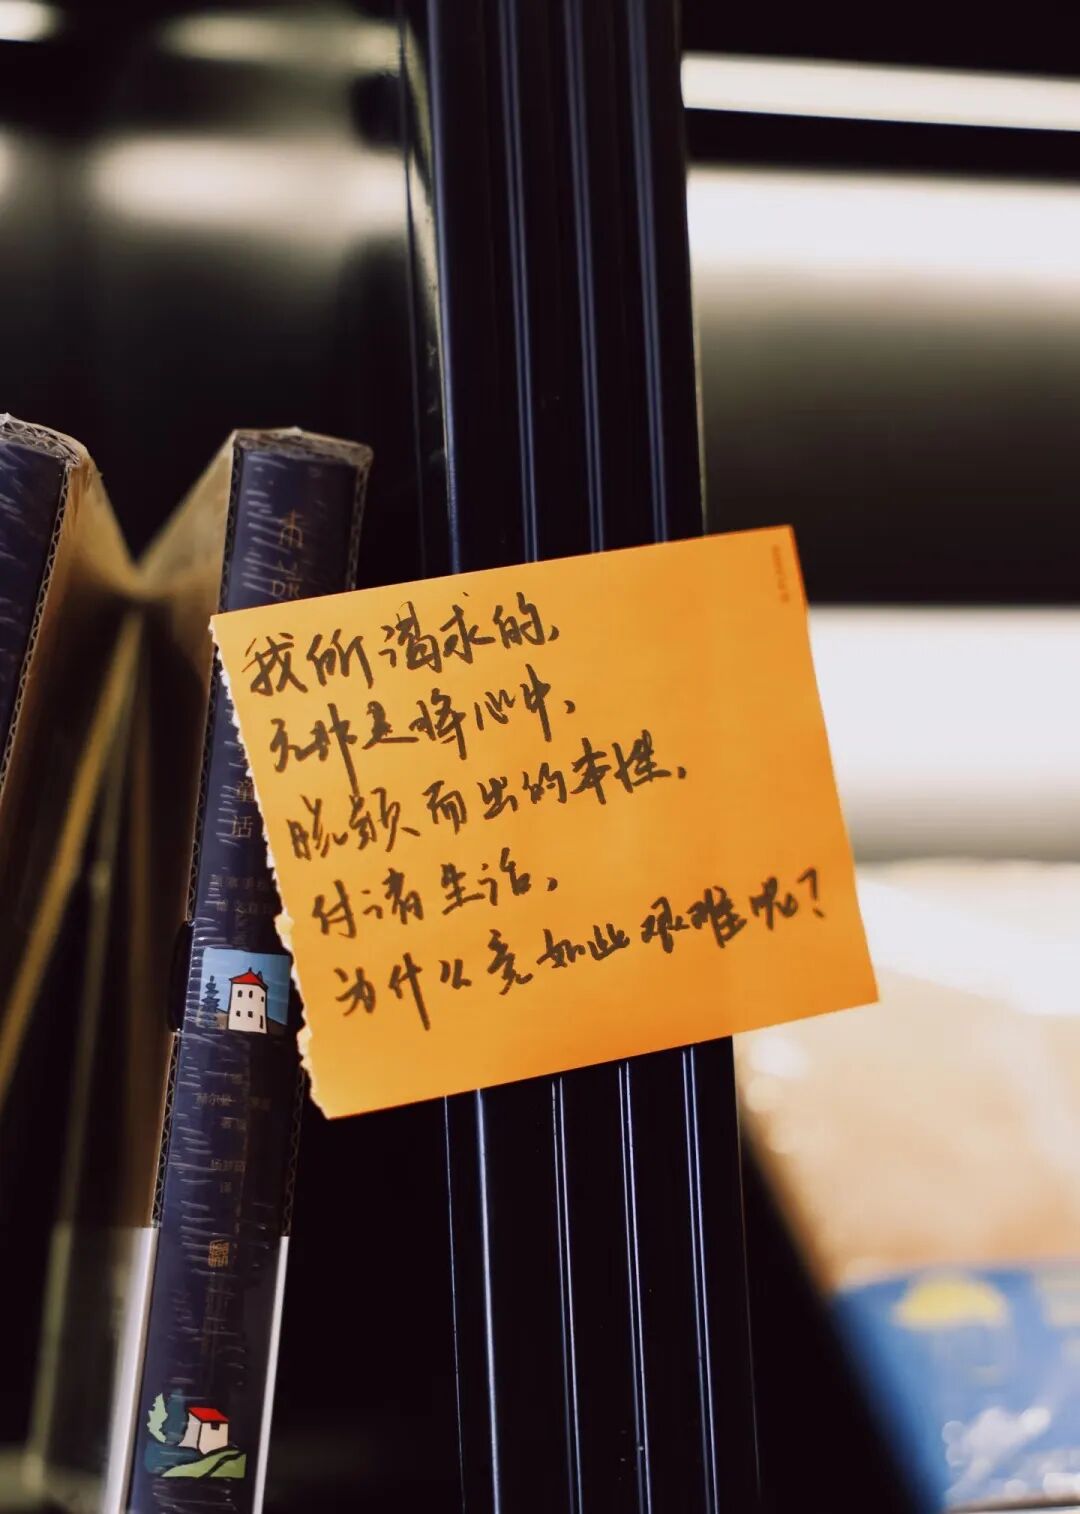 我所渴求的,
无非是将心中,
脱颖而出的本性,
付诸生活,
为什么竟如此艰难呢?
童
话
著
译